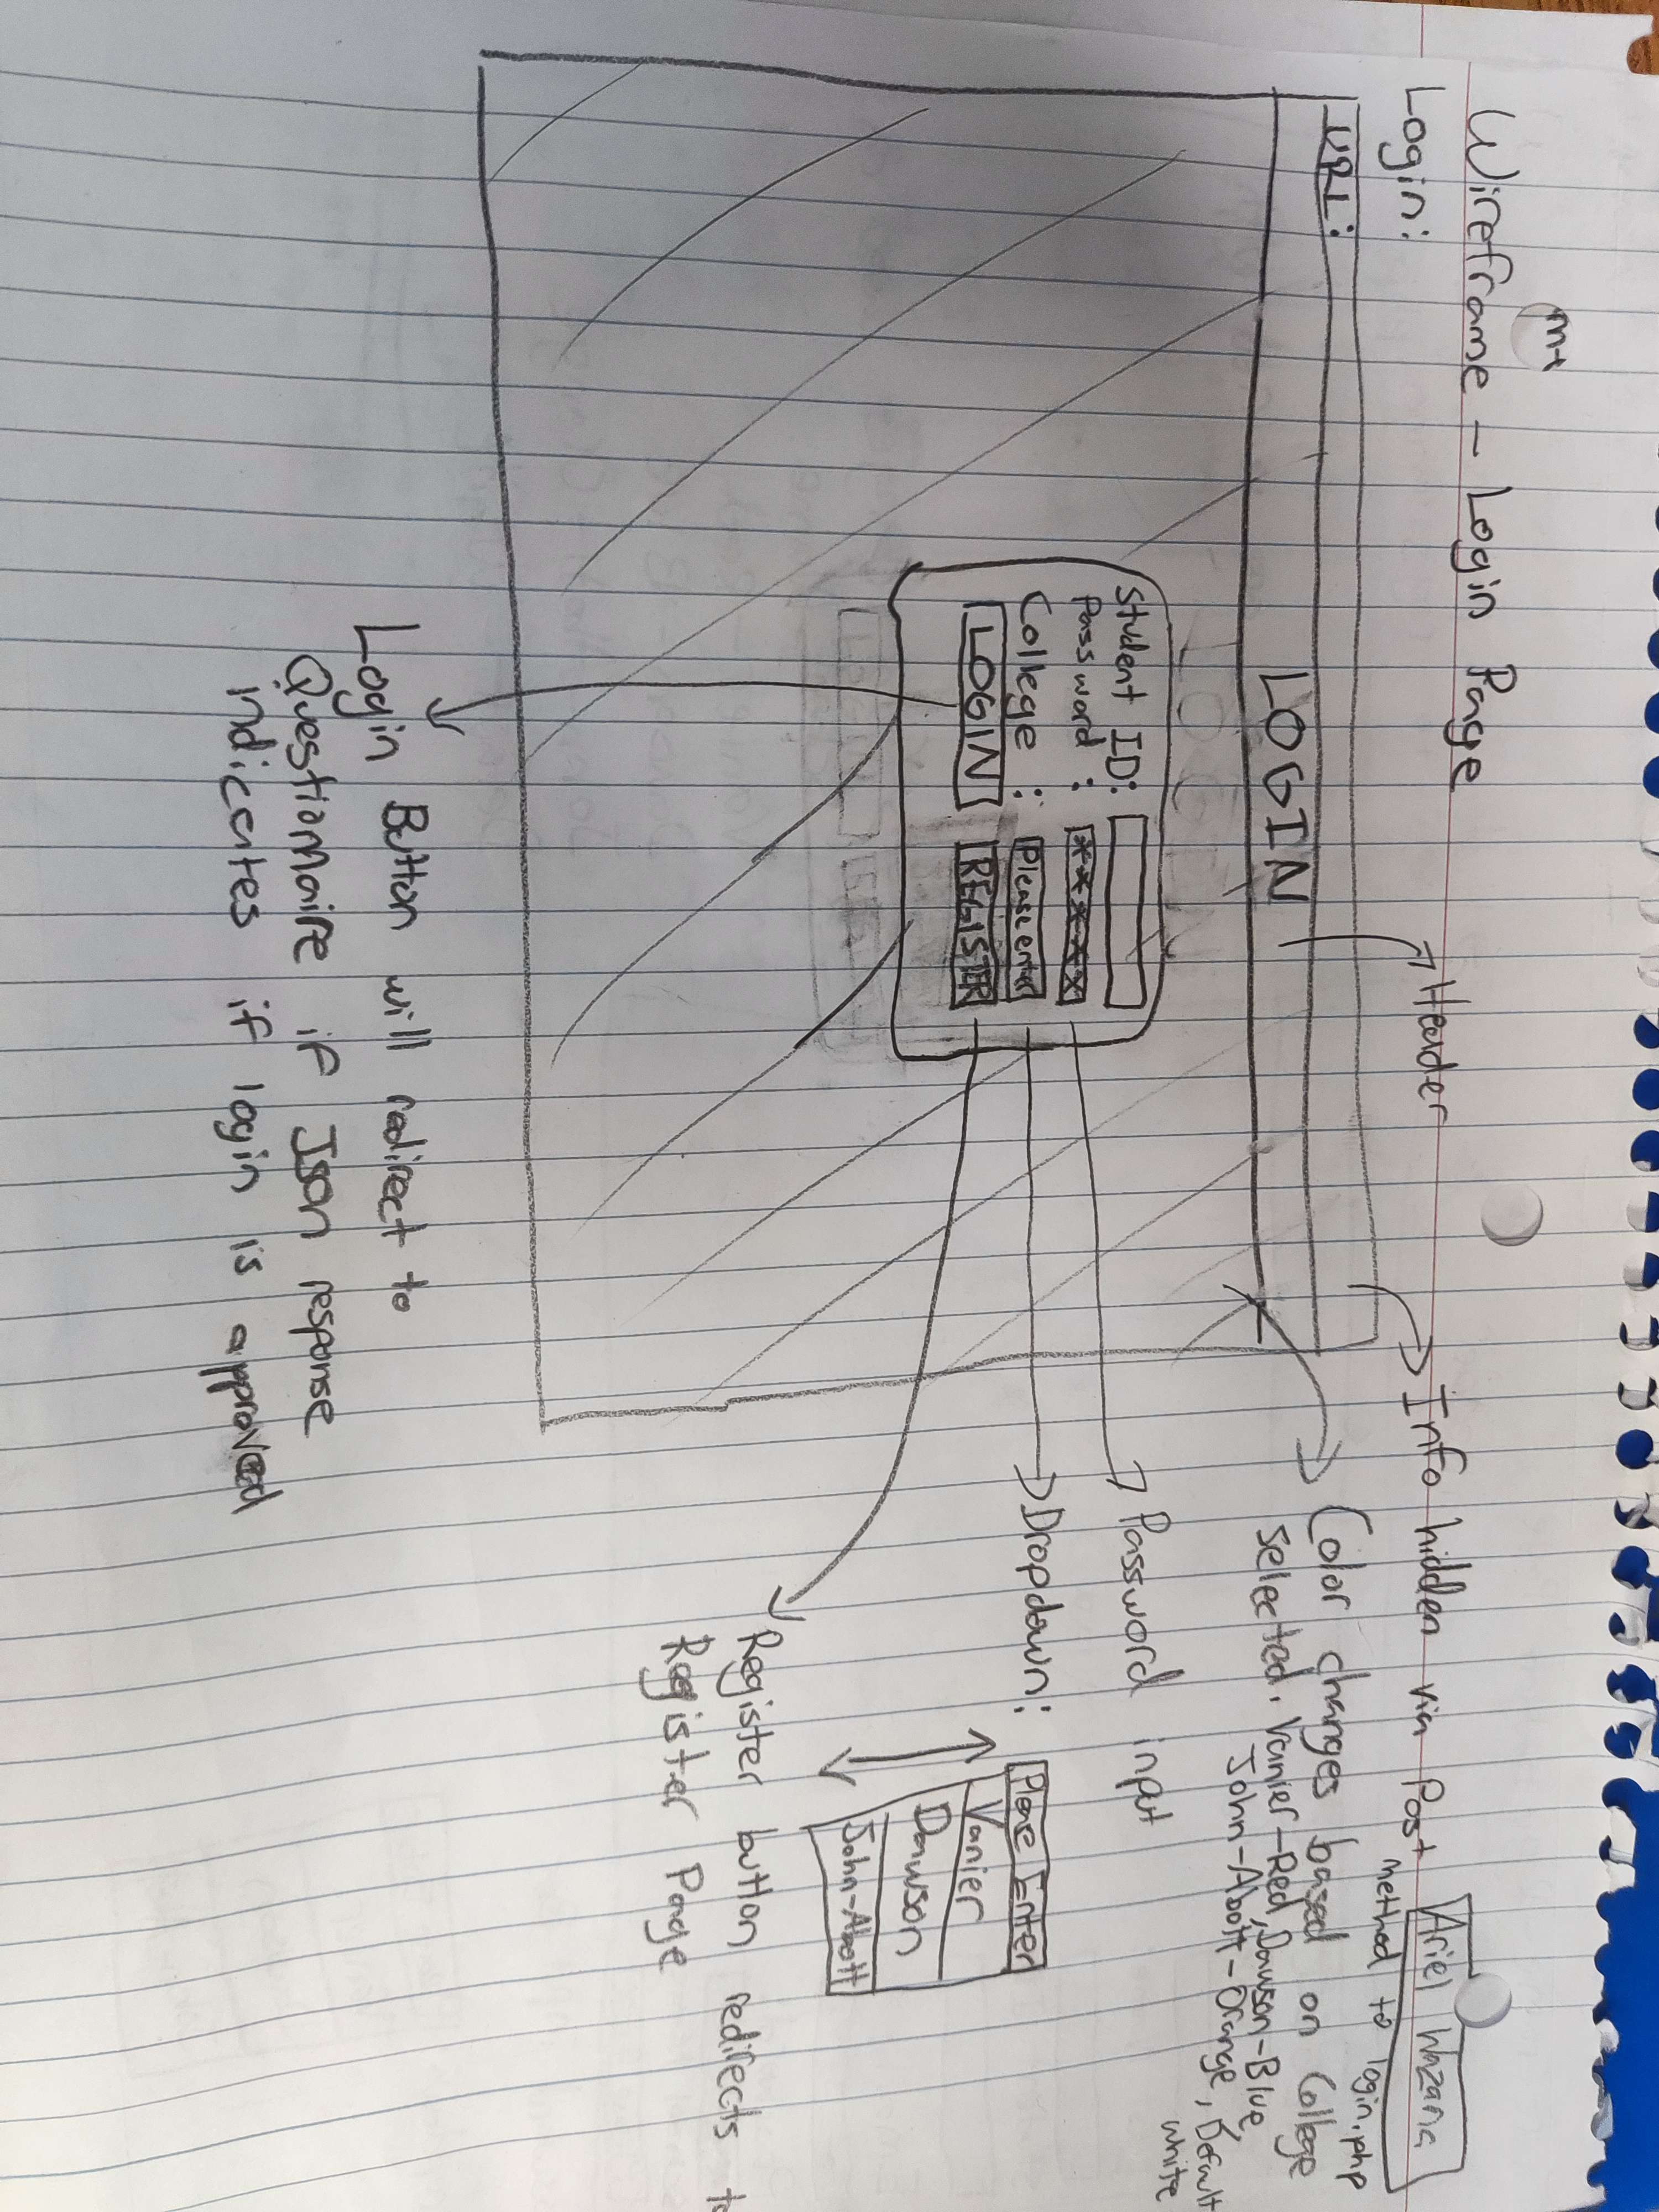 Wireframe - Login Page
Ariel Wazana
Login:
Header
Info hidden via Post method to login.php
URL:
LOGIN
Color changes based on College
selected. Vanier-Red, Dawson-Blue,
John-Abott-Orange, Default
white
Student ID:
Password: *****
College: Please enter
LOGIN REGISTER
Password input
Dropdown: Please Enter
Vanier
Dawson
John-Abott
Register button redirects to
Register Page
Login Button will redirect to
Questionnaire if JSON response
indicates if login is approved